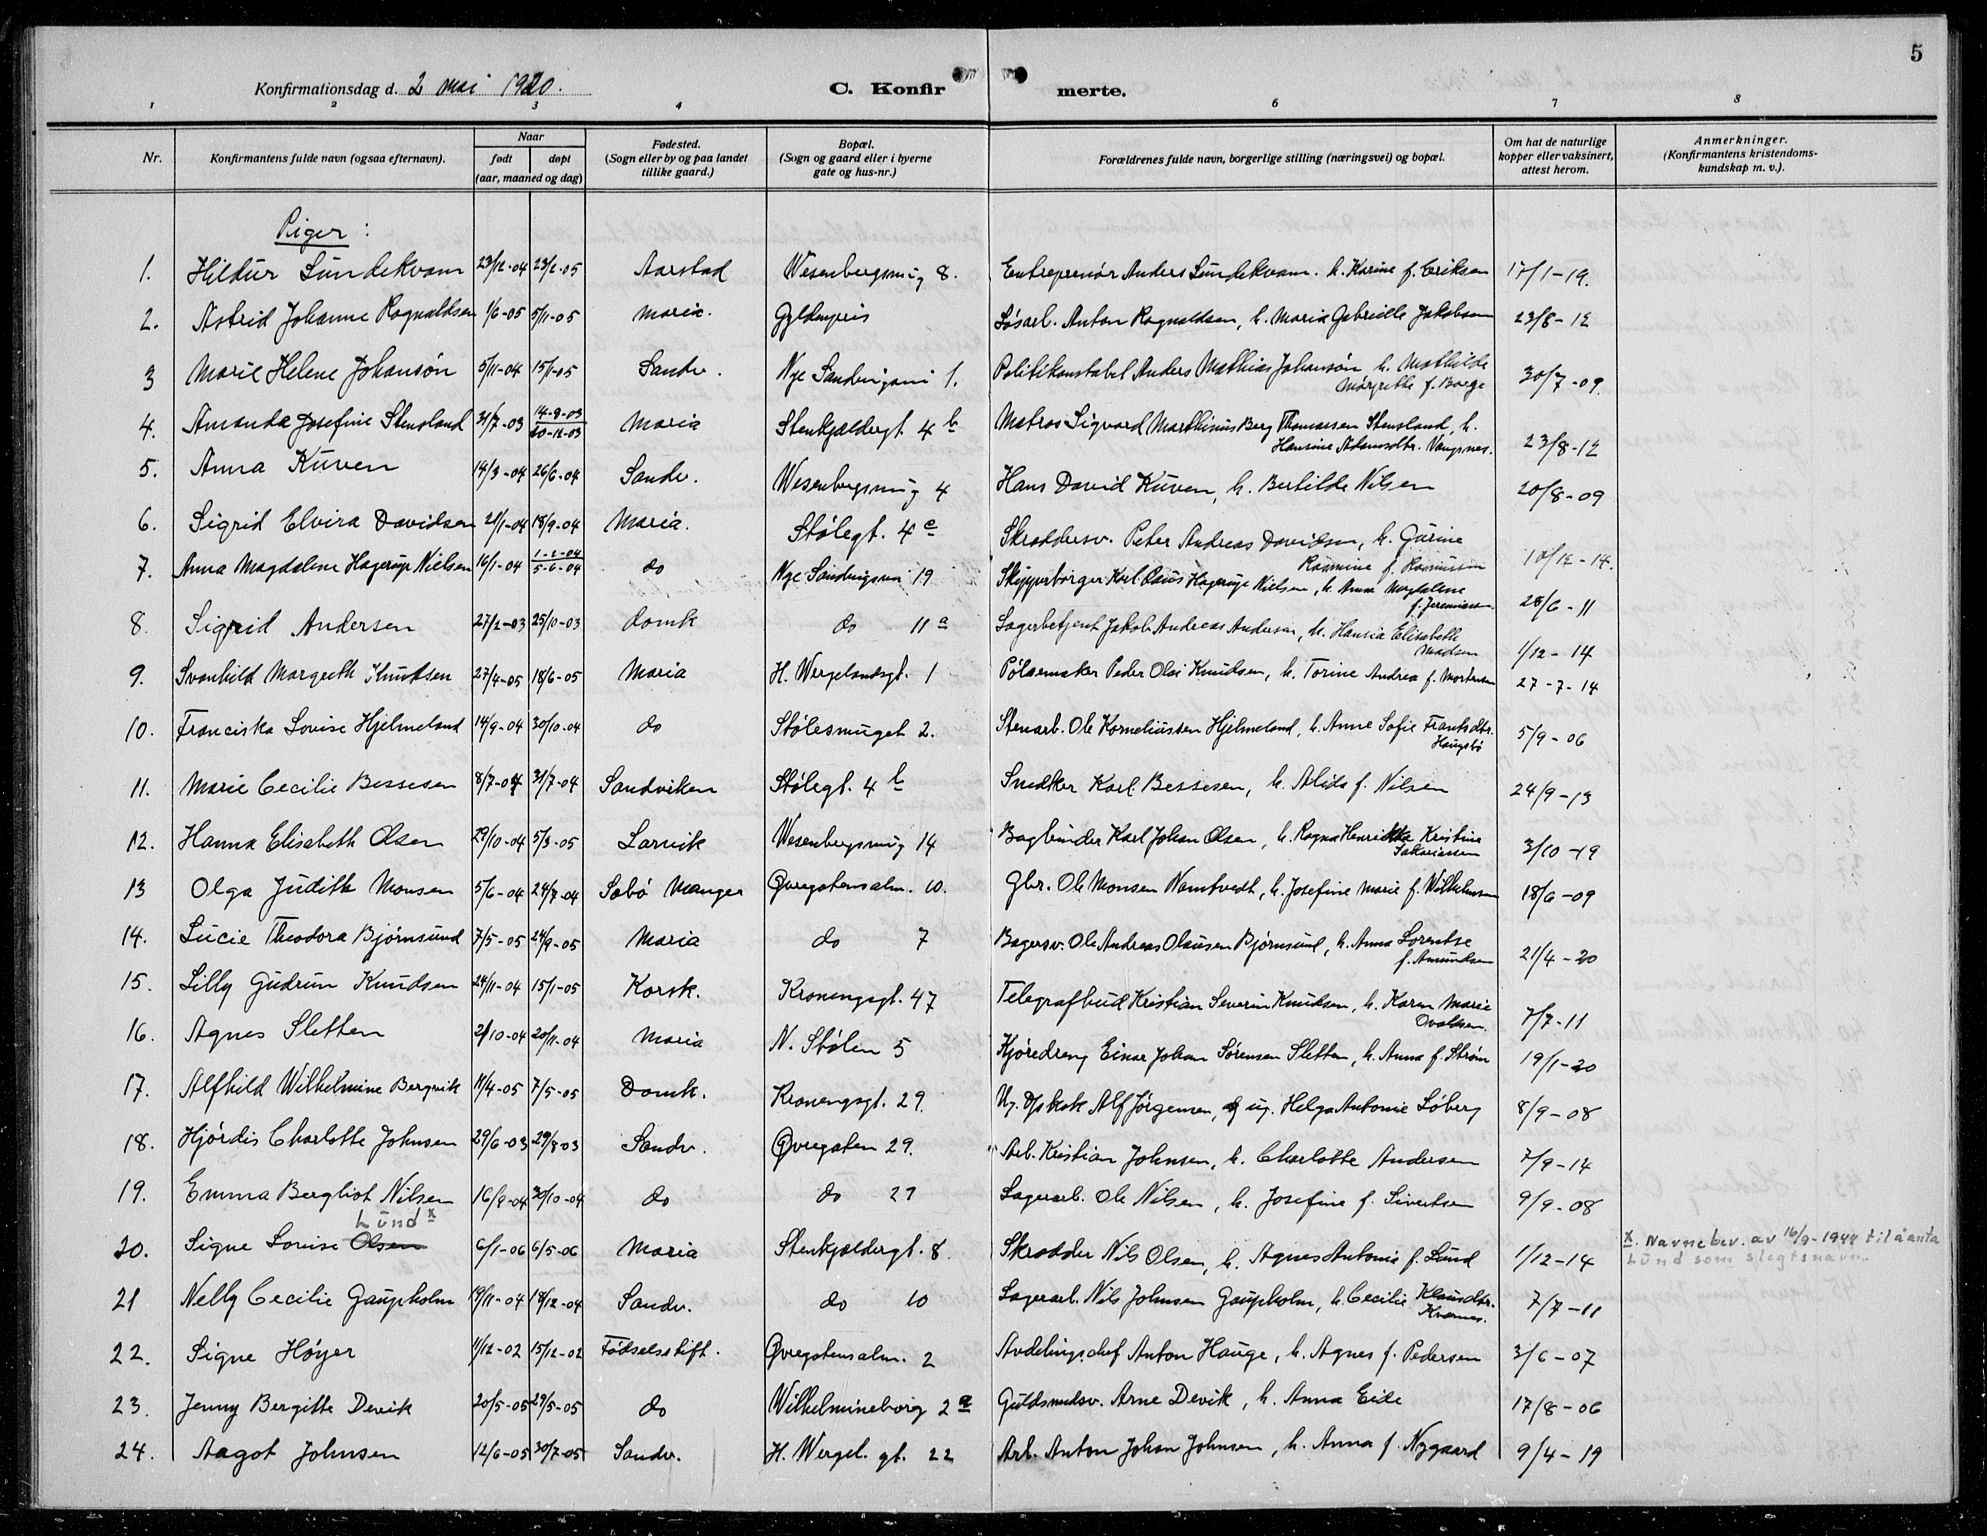 5
Konfirmationsdag d. 2 mai 1920.
C. Konfirmerte.
1 2 3 4 6 7 8
Nr. Konfirmantens fulde navn (ogsaa efternavn). Naar født døpt (aar, maaned og dag) Fødested. (Sogn eller by og paa landet tillike gaard.) Bopæl. (Sogn og gaard eller i byerne gate og hus-nr.) Forældrenes fulde navn, borgerlige stilling (næringsvei) og bopæl. Om hat de naturlige kopper eller vaksinert, attest herom. Anmerkninger. (Konfirmantens kristendoms-kundskap m. v.).
Piger:
1. Hildur Sundekvam 23/12-04 23/2-05 Aarstad Wesenbergsmug 8. Entreprenør Anders Sundekvam. h. Karine f. Eriksen 17/1-19.
2. Astrid Johanne Ragnvaldsen 1/6-05 5/11-05 Maria. Gyldenpris Løsarb. Anton Ragnvaldsen, h. Maria Gabrielle Jakobsen 23/8-12
3 Marie Helene Johansøn 5/11-04 15/1-05 Sandv. Nye Sandviksvei 1. Politikonstabel Anders Mathias Johansøn h. Mathilde Margrethe f. Borge 30/7-09.
4. Amanda Josefine Stensland 31/7-03 14-9-03 20-12-03 Maria Stenkjeldergt. 4 b Matros Sigvard Marthinus Berg Thomassen Stensland, h. Hansine Adamsdtr. Vangsnes. 23/8-12
5. Anna Kuven 14/3-04 26/6-04 Sandv. Wesenbergsmug 4 Hans David Kuven, h. Bertilde Nilsen 20/8-09
6. Sigrid Elvira Davidsen 21/1-04 18/9-04 Maria. Stølegt. 4 c Skreddersv. Peter Andreas Davidsen, h. Gurine Rasmine f. Rasmussen 10/12-14.
7. Anna Magdalene Hagerup Nielsen 16/1-04 1-2-04 5-6-04 do Nye Sandviksvei 19 Skipperborger Karl Claus Hagerup Nielsen, h. Anna Magdalene f. Jeremiassen 28/6-11
8. Sigrid Andersen 27/2-03 25/10-03 Domk do 11 a Lagerbetjent Jakob Andreas Andersen, h. Hansia Elisabeth Madsen 1/12-14
9. Svanhild Margreth Knudsen 27/4-05 18/6-05 Maria H. Wergelandsgt. 1 Pølsemaker Peder Olai Knudsen, h. Torine Andrea f. Mortensen 27-7-14
10. Franciska Lovise Hjelmeland 14/9-04 30/10-04 do Stølesmuget 2. Stenarb. Ole Korneliussen Hjelmeland, h. Anne Sofie Frantsdtr. Haugsbø 5/9-06
11. Marie Cecilie Bessesen 8/7-04 31/7-04 Sandviken Stølegt. 4 b Snedker Karl Bessesen, h. Alida f. Nilsen 24/9-13
12. Hanna Elisabeth Olsen 29/10-04 5/3-05 Larvik Wesenbergsmug 14 Bogbinder Karl Johan Olsen, h. Ragna Henrikka Kristine Sakariassen 3/10-19
13 Olga Judith Monsen 5/6-04 24/7-04 Sabø Manger Øvregatensalm. 10. Gbr. Ole Monsen Namtvedt, h. Josefine Marie f. Wilhelmsen 18/6-09
14. Lucie Theodora Bjørnsund 7/5-05 24/9-05 Maria do 7 Bagersv. Ole Andreas Olausen Bjørnsund, h. Anna Lorentse f. Amundsen 21/4-20
15. Lilly Gudrun Knudsen 24/11-04 15/1-05 Korsk. Kronengsgt. 47 Telegrafbud Kristian Severin Knudsen, h. Karen Marie 7/7-11
16. Agnes Sletten 2/10-04 20/11-04 Maria N. Stølen 5 Kjøredreng Einar Johan Sørensen Sletten, h. Anna f. Strøm 19/1-20
17. Alfhild Wilhelmine Bergvik 11/4-05 7/5-05 Domk. Kronengsgt. 29. Ug. Alf Jørgensen, og ug. Helga Antonie Løberg 8/9-08
18. Hjørdis Charlotte Johnsen 29/6-03 29/8-03 Sandv. Øvregaten 29. Arb. Kristian Johnsen, h. Charlotte Andersen 7/9-14
19. Emma Bergliot Nilsen 16/9-04 30/10-04 do do 27 Lagerarb. Ole Nilsen, h. Josefine f. Sivertsen 9/9-08
20. Signe Lovise Olsen Lund x 6/1-06 6/5-06 Maria Stenkjeldergt. 8. Skredder Nils Olsen, h. Agnes Antonie f. Lund 1/12-14 x. Navnebev. av 16/9-1944 til å anta Lund som slegtsnavn.
21 Nelly Cecilie Gaupholm 19/11-04 18/12-04 Sandv. do 10 Lagerarb. Nils Johnsen Gaupholm, h. Cecilie Klausdtr. Kvamnes. 7/7-11
22. Signe Høyer 11/12-02 15/12-02 Fødselsstift. Øvregatensalm. 2 Avdelingschef Anton Hauge, h. Agnes f. Pedersen 3/6-07
23. Jenny Bergitte Devik 20/5-05 29/5-05 do Wilhelmineborg 2 a Guldsmedsv. Arne Devik, h. Anna Eide 17/8-06
24. Aagot Johnsen 12/6-05 30/7-05 Sandv. H. Wergel. gt. 22 Arb. Anton Johan Johnsen, h. Anna f. Nygaard 9/4-19